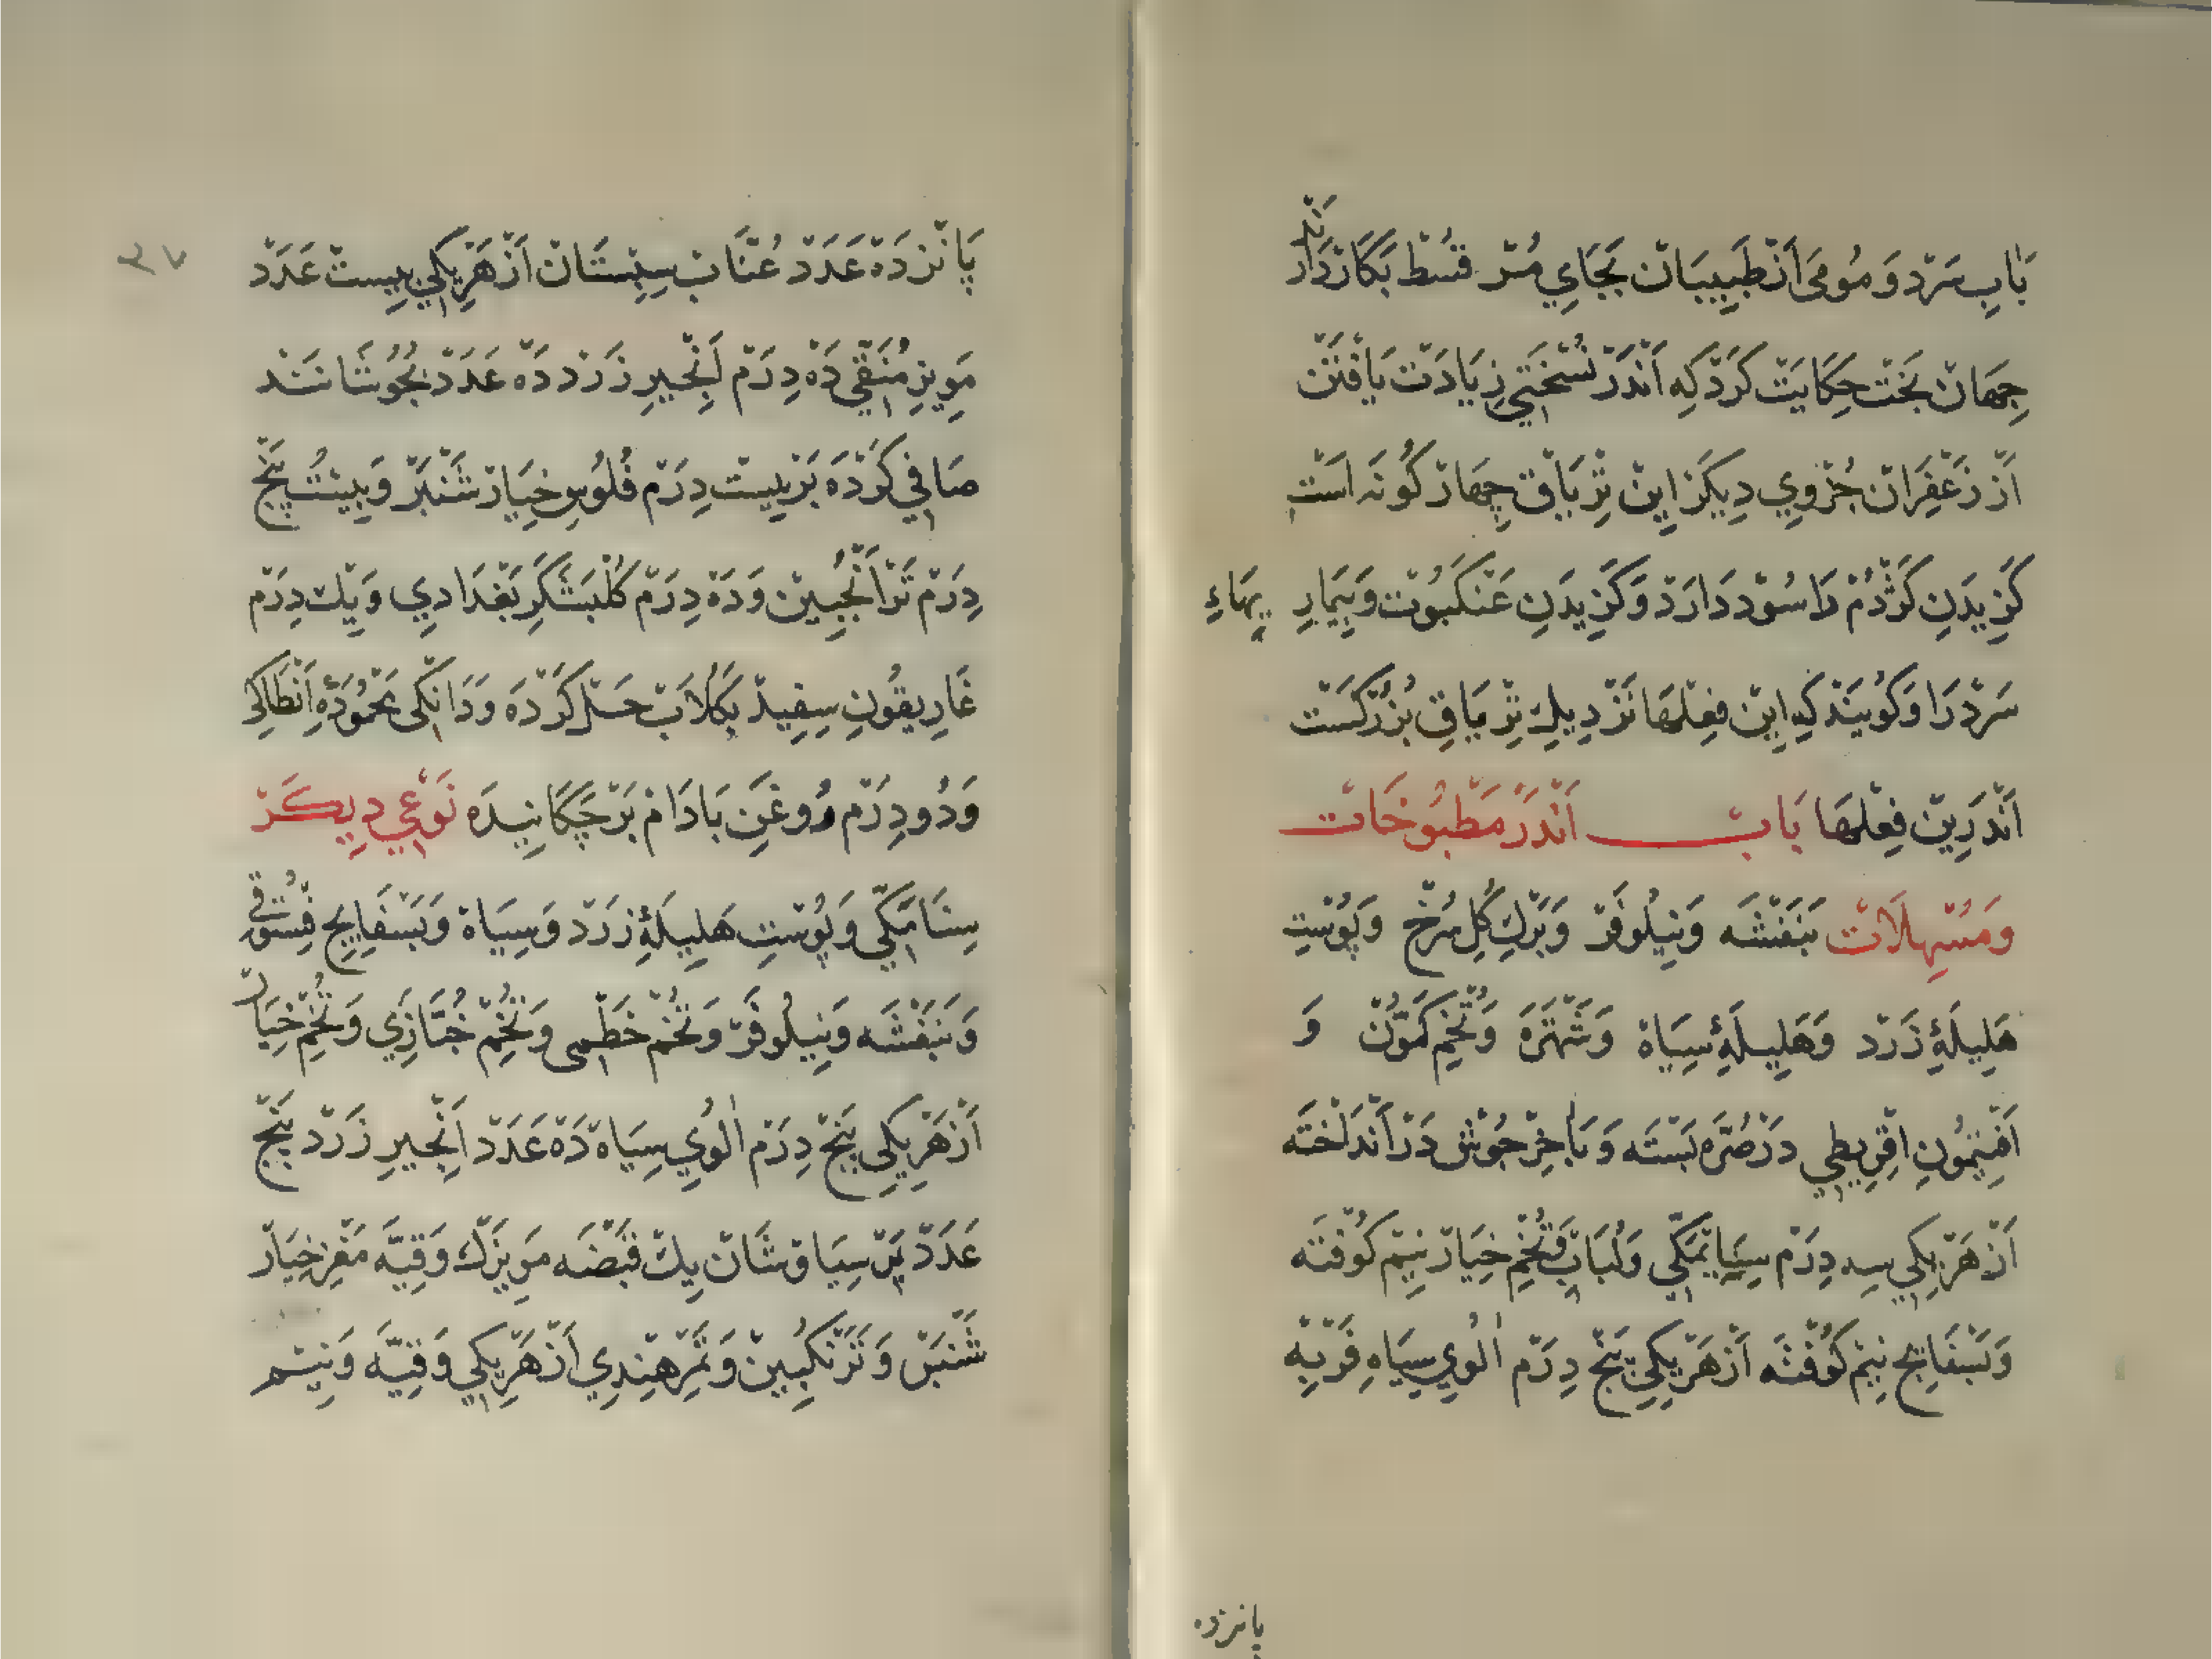 بَابِ سَرْد وَ مُومَى اَزْ طَبِيبَانْ بَجَايِ مُرّ قُسْط بَكَارْ دَارَنْد
جِهَانْ بَخْت حِكَايَتْ كَرْد كِه اَنْدَرْ نُسْخَتِي زِيَادَتْ يَافْتَنْ
اَزْ زَعْفِرَانْ جُزْوِي دِيكَرْ اِينْ تِرْيَاقْ چِهَارْ كُونَه اَسْت
كَزِيدَنِ كَزْدُمْ رَا سُوْد دَارَدْ وَ كَزِيدَنِ عَنْكَبُوْت وَ بِيمَارِيهَاءِ
سَرْد رَا وَ كُويَنْد كِه اِينْ فِعْلهَا نَزْدِيكِ تِرْيَاقِ بُزُرْكَسْت
اَنْدَرِينْ فِعْلهَا بَابْ اَنْدَرْ مَطْبُوخَاتْ
وَ مُسْهِلَاتْ بَنَفْشَه وَ نِيلُوفَرْ وَ بَرْكِ كُلِ سُرْخ وَ پُوْسْتِ
هَلِيلَهٔ زَرْد وَ هَلِيلَهٔ سِيَاهْ وَ شَهْتَرَه وَ تُخْمِ كَمُّونْ وَ
اَفْتِيمُونِ اِقْرِيطِي دَرْ صُرَّه بَسْتَه وَ بَآخِرْ جُوْش دَرْ اَنْدَاخْتَه
اَزْ هَرْ يِكِي سِه دِرَمْ سِنَاءِ مَكِّي وَ لُبَابِ تُخْمِ خِيَارْ نِيمْ كُوْفْتَه
وَ بَسْفَايِجْ نِيمْ كُوْفْتَه اَزْ هَرْ يِكِي پَنْجْ دِرَمْ اٰلُوِي سِيَاهِ فَرْبِه
پانزده
٣٧
پَانْزْدَهْ عَدَدْ عُنَّابْ سِپِسْتَانْ اَزْ هَرْ يِكِي بِيسْتْ عَدَدْ
مَوِيزِ مُنَقّٰي دَهْ دِرَمْ اَنْجِيرِ زَرْد دَهْ عَدَدْ بَجُوْشَانَنْد
صَافِي كَرْدَه بَرْ بِيسْت دِرَمْ فُلُوسِ خِيَارْ شَنْبَرْ وَ بِيسْتُ پَنْجْ
دِرَمْ تَرْاَنْجُبِينْ وَ دَهْ دِرَمْ كُلْبَشَكَرِ بَغْدَادِي وَ يِكْ دِرَمْ
غَارِيقُونِ سِفِيدْ بَكُلَابْ حَلّ كَرْدَه وَ دَانْكِى مَحْمُودَهِ اَنْطَاكِي
وَ دُو دِرَمْ رُوغَنِ بَادَامْ بَرْچَكَانِيدَه نَوْعِي دِيكَرْ
سِنَا مَكِّي وَ پُوْسْتِ هَلِيلَهٔ زَرْد وَ سِيَاهْ وَ بَسْفَايِجِ فُسْتُقِي
وَ بَنَفْشَه وَ نِيلُوفَرْ وَ تُخْمِ خَطْمِى وَ تُخْمِ خُبَّازِي وَ تُخْمِ خِيَارْ
اَزْ هَرْ يِكِي پَنْجْ دِرَمْ اٰلُوِي سِيَاهْ دَهْ عَدَدْ اَنْجِيرِ زَرْد پَنْجْ
عَدَدْ پَرِّ سِيَاوُشَانْ يِكْ قَبْضَه مَوِيزَكْ وَقِيَّه مَغْزِ خِيَارْ
شَنْبَرْ وَ تَرَنْكُبِينْ وَ تَمْرِ هِنْدِي اَزْ هَرْ يِكِي وَقِيَّه وَ نِيمْ